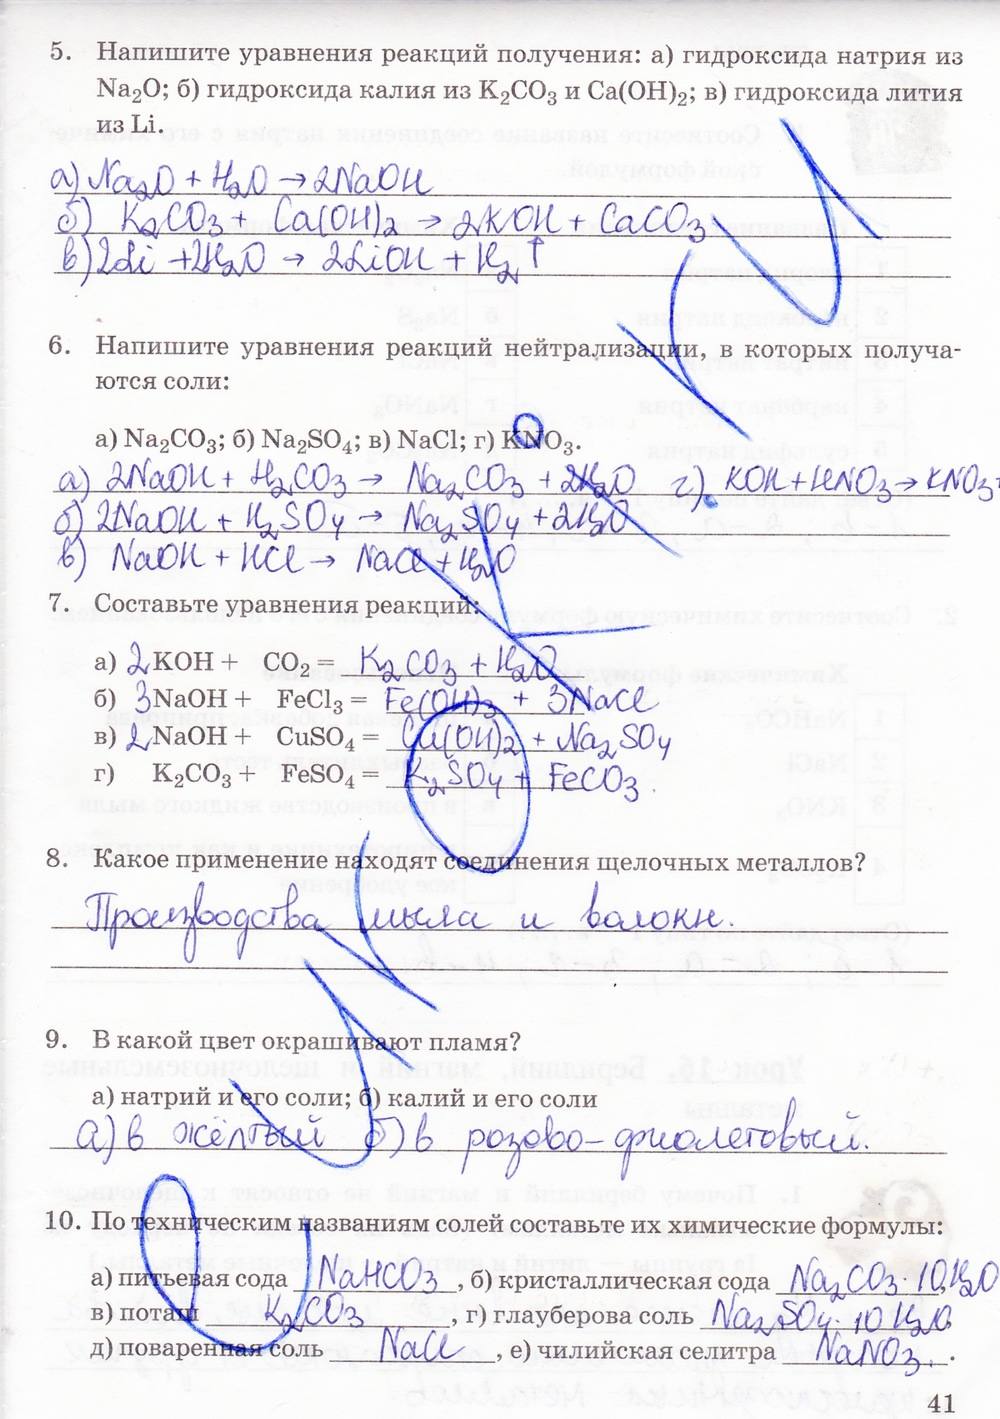 5. Напишите уравнения реакций получения: а) гидроксида натрия из
Na₂O; б) гидроксида калия из K₂CO₃ и Ca(OH)₂; в) гидроксида лития
из Li.
а) Na₂O + H₂O → 2NaOH
б) K₂CO₃ + Ca(OH)₂ → 2KOH + CaCO₃
в) 2Li + 2H₂O → 2LiOH + H₂ ↑
6. Напишите уравнения реакций нейтрализации, в которых получа-
ются соли:
а) Na₂CO₃; б) Na₂SO₄; в) NaCl; г) KNO₃.
а) 2NaOH + H₂CO₃ → Na₂CO₃ + 2H₂O г). KOH + HNO₃ → KNO₃ +
б) 2NaOH + H₂SO₄ → Na₂SO₄ + 2H₂O
в) NaOH + HCl → NaCl + H₂O
7. Составьте уравнения реакций:
а) 2KOH + CO₂ = K₂CO₃ + H₂O
б) 3NaOH + FeCl₃ = Fe(OH)₃ + 3NaCl
в) 2NaOH + CuSO₄ = Cu(OH)₂ + Na₂SO₄
г) K₂CO₃ + FeSO₄ = K₂SO₄ + FeCO₃
8. Какое применение находят соединения щелочных металлов?
Производства мыла и волокн.
9. В какой цвет окрашивают пламя?
а) натрий и его соли; б) калий и его соли
а) в жёлтый б) в розово-фиолетовый.
10. По техническим названиям солей составьте их химические формулы:
а) питьевая сода NaHCO₃, б) кристаллическая сода Na₂CO₃·10H₂O
в) поташ K₂CO₃, г) глауберова соль Na₂SO₄·10H₂O
д) поваренная соль NaCl, е) чилийская селитра NaNO₃.
41